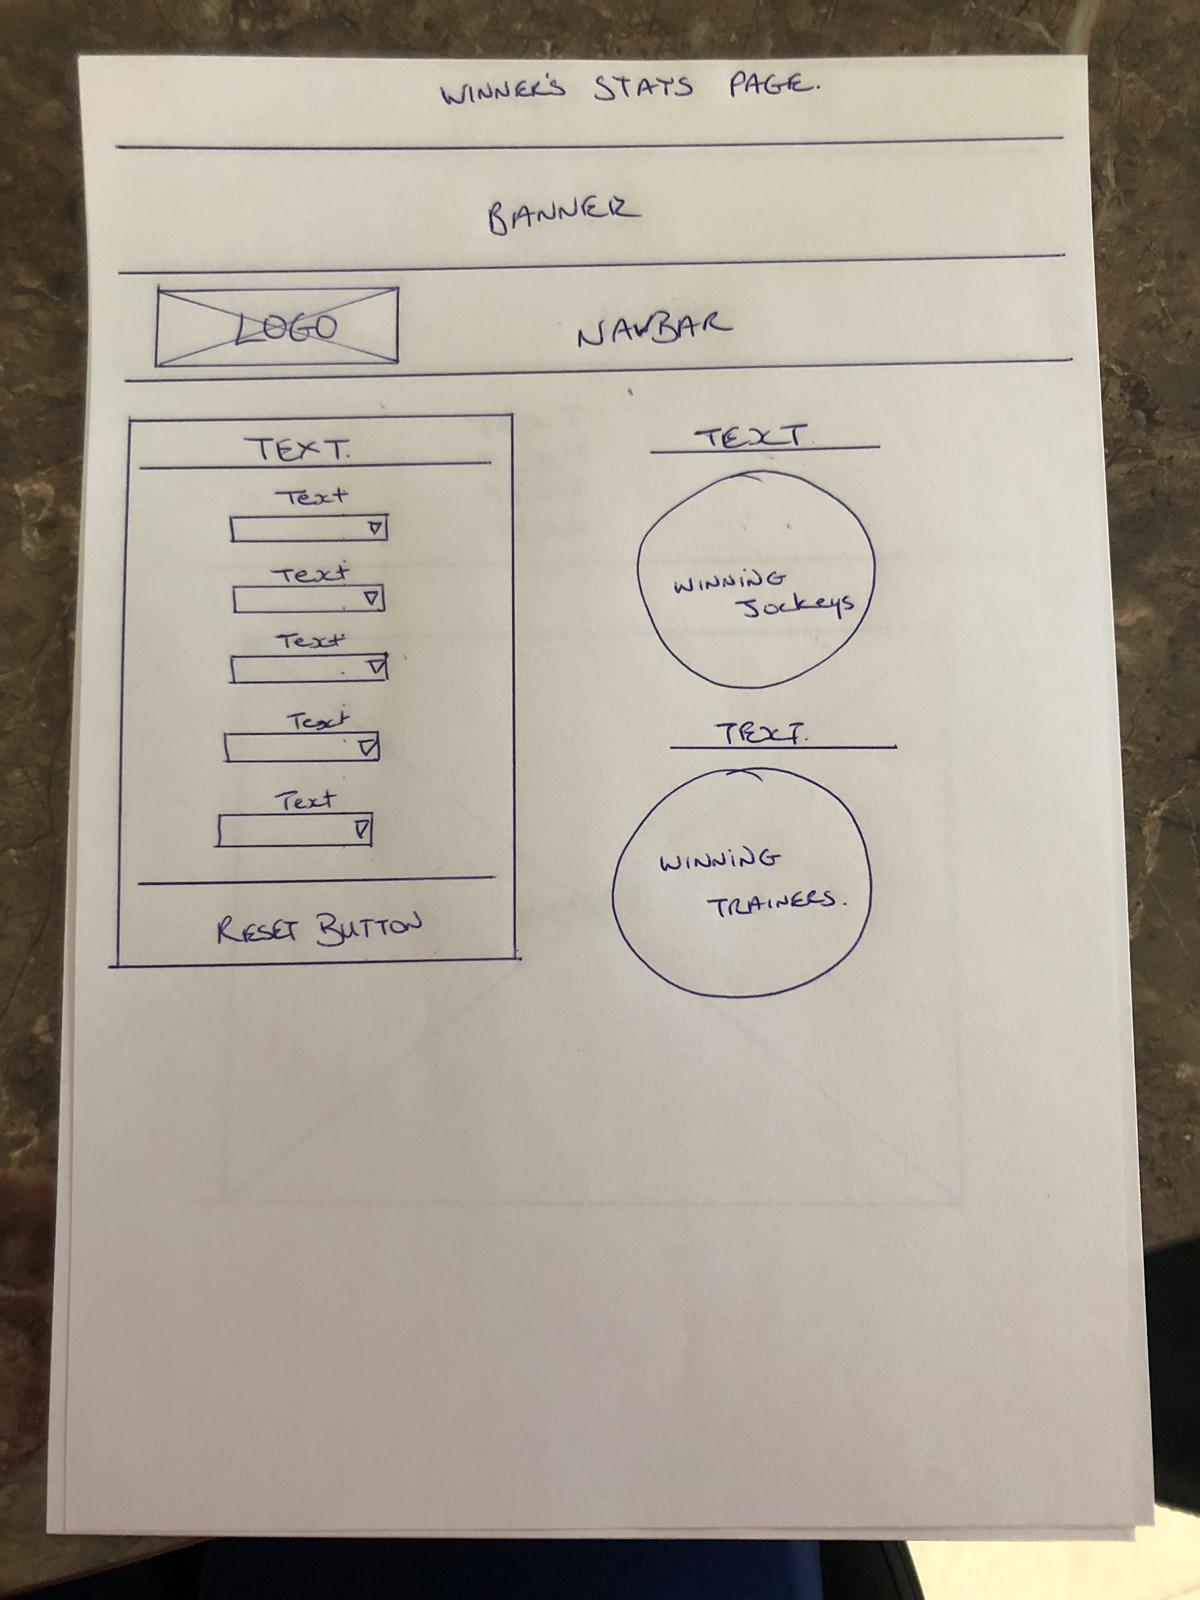 WINNER'S STATS PAGE.
BANNER
LOGO
NAVBAR
TEXT.
Text
Text
Text
Text
Text
RESET BUTTON
TEXT.
WINNING
Jockeys
TEXT.
WINNING
TRAINERS.